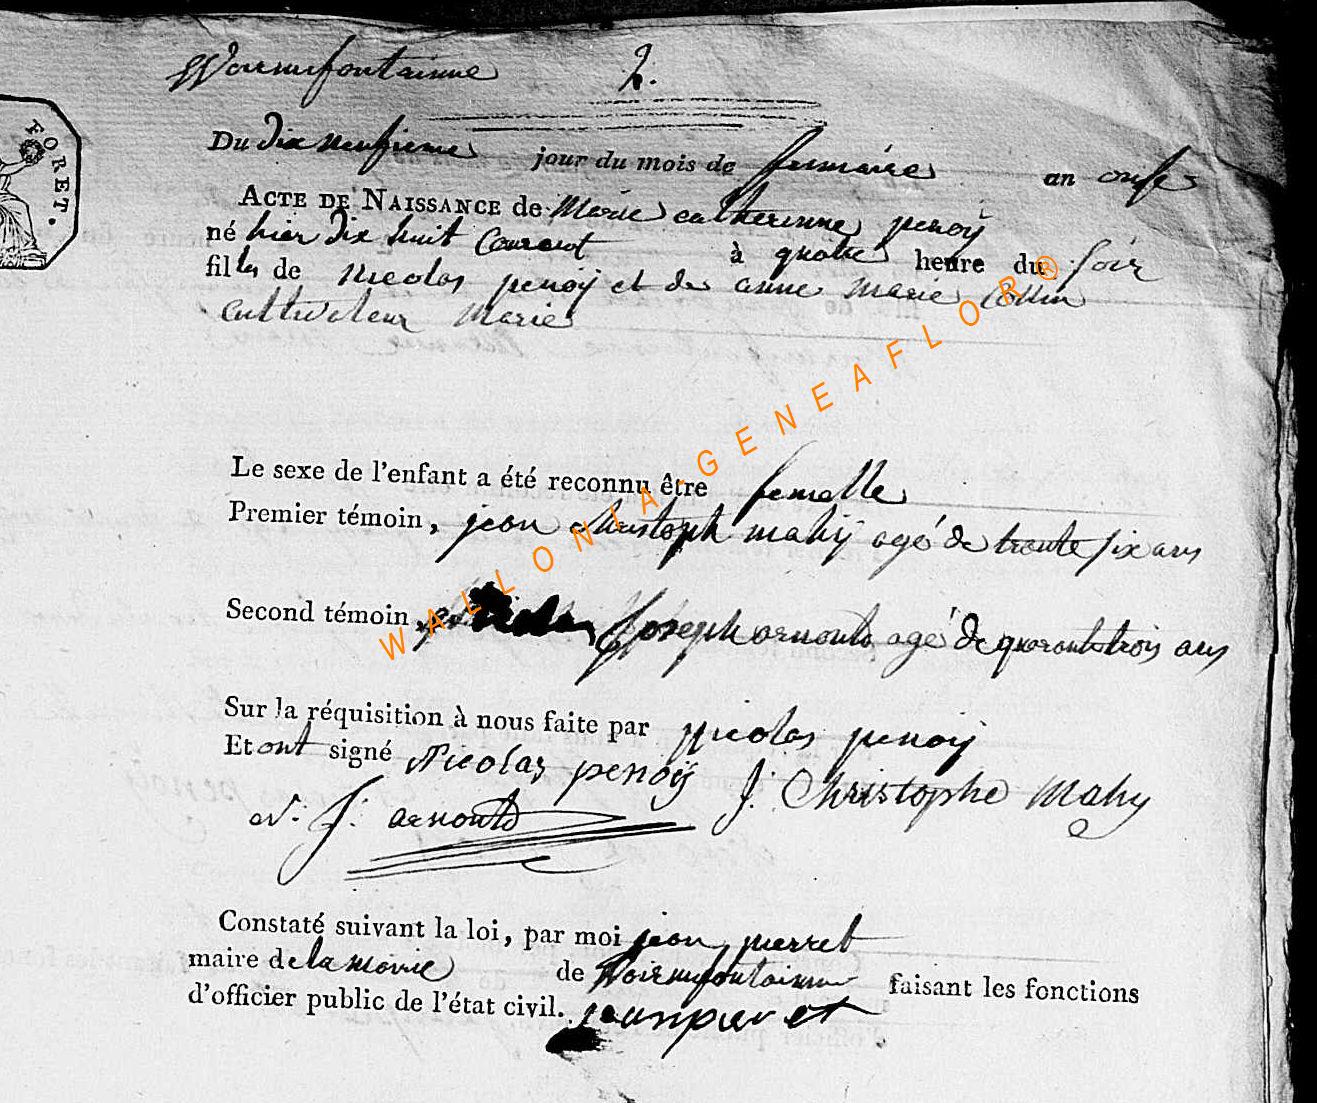 Warmifontainne 2.
FORET.
Du dix neufieme jour du mois de frimaire an onse
ACTE DE NAISSANCE de Marie catherinne penoÿ
né hier dix huit Courant à quatre heure du soir
fille de nicolas penoÿ et de anne marie Collin
Cultivateur Marie
Le sexe de l'enfant a été reconnu être femelle
Premier témoin, jean christoph mahÿ agé de trente six ans
Second témoin, Joseph arnould agé de quarante trois ans
Sur la réquisition à nous faite par nicolas penoÿ
Et ont signé Nicolas penoÿ J: Christophe Mahy
J: arnould
Constaté suivant la loi, par moi jean pierret
maire de la mairie de Warmifontainne faisant les fonctions
d'officier public de l'état civil. jean pierret
WALLONIA-GENEAFLOR®